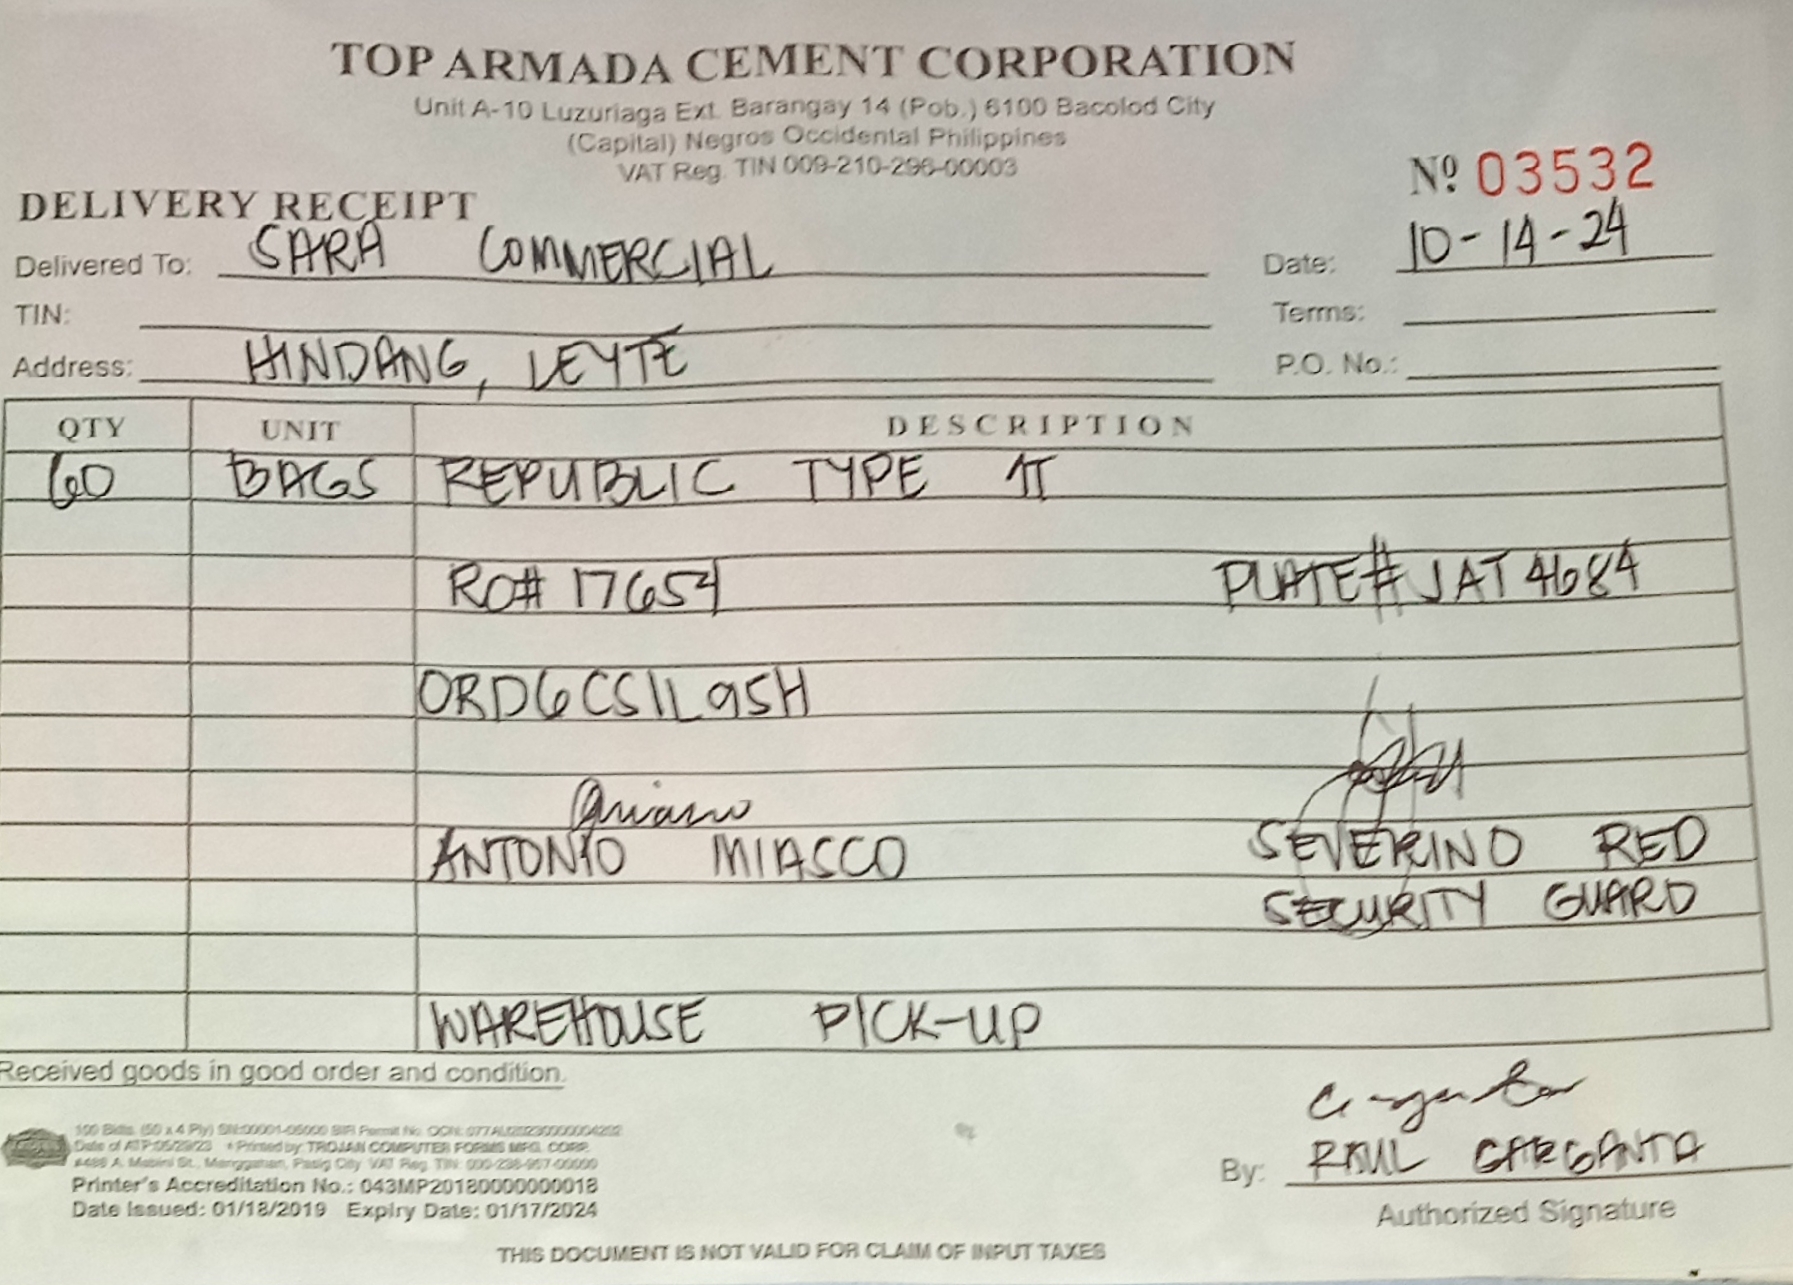 TOP ARMADA CEMENT CORPORATION
Unit A-10 Luzuriaga Ext. Barangay 14 (Pob.) 6100 Bacolod City
(Capital) Negros Occidental Philippines
VAT Reg. TIN 009-210-296-00003
Nº 03532
DELIVERY RECEIPT
Delivered To: SARA COMMERCIAL Date: 10-14-24
TIN: Terms:
Address: HINDANG, LEYTE P.O. No.:
QTY UNIT DESCRIPTION
60 BAGS REPUBLIC TYPE II
RO# 17654 PLATE# JAT 4684
ORD6CS1L95H
ANTONIO MIASCO SEVERINO RED
SECURITY GUARD
WAREHOUSE PICK-UP
Received goods in good order and condition.
100 Bklts. (50 x 4 Ply) SN:00001-05000 BIR Permit No. OCN:
Date of ATP:05/29/23 Printed by: TROJAN COMPUTER FORMS MFG. CORP.
A. Mabini St., Manggahan, Pasig City VAT Reg. TIN:
Printer's Accreditation No.: 043MP20180000000018
Date Issued: 01/18/2019 Expiry Date: 01/17/2024
By: RAUL GARGANTA
Authorized Signature
THIS DOCUMENT IS NOT VALID FOR CLAIM OF INPUT TAXES